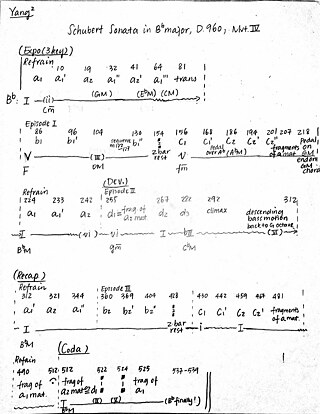 Yang²
Schubert Sonata in B♭ major, D.960; Mvt. IV
(Expo (3 key))
Refrain
10 19 32 41 64 81
a₁ a₁' a₂ a₁'' a₂' a₁''' trans
(GM) (E♭M) (CM)
B♭: I (ii)
Cm
Episode I
86 96 104 130 154 156 168 186 194 201 207 218
b₁ b₁' b₁'' 2 bar rest C₁ C₁' C₂ C₂' C₂'' fragments of a mat.
V (III) V
F fm
(DEV.)
Refrain Episode II
224 233 242 255 267 292 312
a₁ a₁' a₂ d₁ = frag of a₁ mat. climax descending bass motion back to G octave
I (vi) vi I ♭II (VI)
B♭M gm
(Recap)
Refrain Episode III
312 321 344 360 369 404 428 430 442 459 467 481
a₁' a₁'' b₂ b₂' b₂'' C₁ C₁' C₂ C₂' fragments of a mat.
I I 2 bar rest i I
B♭M
Refrain (Coda)
490 512 512 522 524 525 537-539
frag of a₁ mat. frag of a₂ mat frag of a₁
I (II) (V) I (B♭ finally!)
B♭M